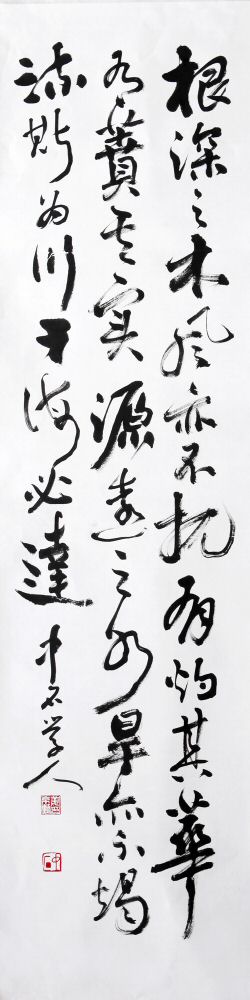 根深之木風亦不扤有灼其華
有蕡其实源遠之水旱亦不竭
流斯为川于海必達
中石学人